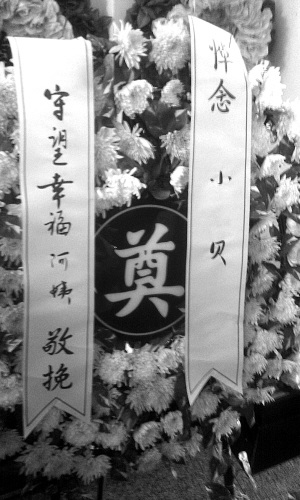 悼念小贝
奠
守望幸福阿姨敬挽